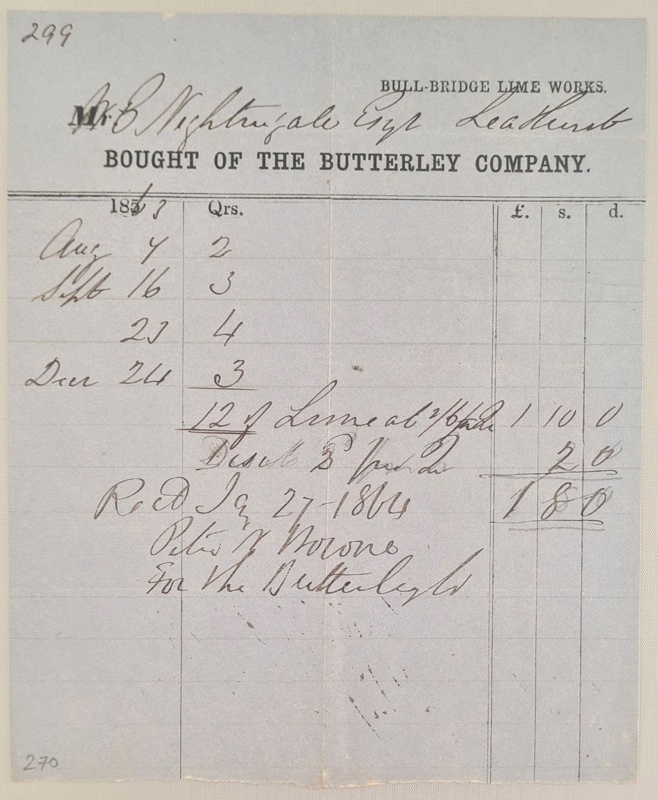 299
BULL-BRIDGE LIME WORKS.
Mr. W E Nightingale Esqr Lea Hurst
BOUGHT OF THE BUTTERLEY COMPANY.
1863 Qrs. £. s. d.
Aug 7 2
Sept 16 3
23 4
Decr 24 3
12 of Lime at 2/6 1 10 0
2 0
Recd Ja 27-1864 1 8 0
For the Butterley Co
270